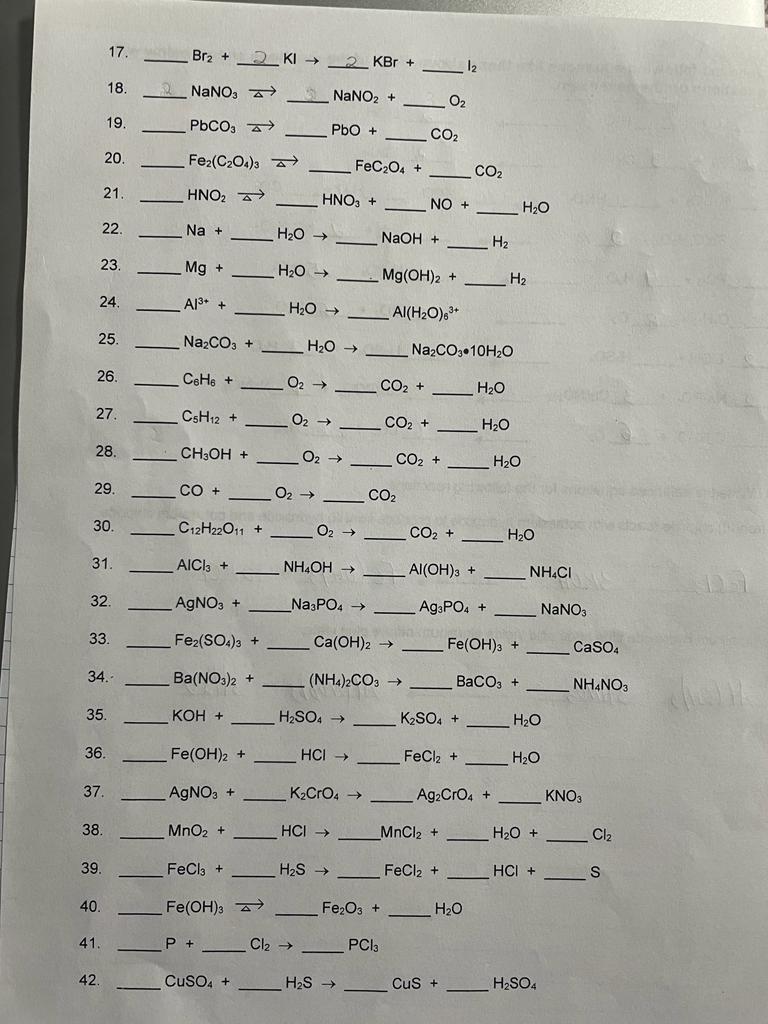 17. ____ Br₂ + _2_ KI → _2_ KBr + ____ I₂
18. _2_ NaNO₃ ⇀△ ____ NaNO₂ + ____ O₂
19. ____ PbCO₃ ⇀△ ____ PbO + ____ CO₂
20. ____ Fe₂(C₂O₄)₃ ⇀△ ____ FeC₂O₄ + ____ CO₂
21. ____ HNO₂ ⇀△ ____ HNO₃ + ____ NO + ____ H₂O
22. ____ Na + ____ H₂O → ____ NaOH + ____ H₂
23. ____ Mg + ____ H₂O → ____ Mg(OH)₂ + ____ H₂
24. ____ Al³⁺ + ____ H₂O → ____ Al(H₂O)₆³⁺
25. ____ Na₂CO₃ + ____ H₂O → ____ Na₂CO₃•10H₂O
26. ____ C₆H₆ + ____ O₂ → ____ CO₂ + ____ H₂O
27. ____ C₅H₁₂ + ____ O₂ → ____ CO₂ + ____ H₂O
28. ____ CH₃OH + ____ O₂ → ____ CO₂ + ____ H₂O
29. ____ CO + ____ O₂ → ____ CO₂
30. ____ C₁₂H₂₂O₁₁ + ____ O₂ → ____ CO₂ + ____ H₂O
31. ____ AlCl₃ + ____ NH₄OH → ____ Al(OH)₃ + ____ NH₄Cl
32. ____ AgNO₃ + ____ Na₃PO₄ → ____ Ag₃PO₄ + ____ NaNO₃
33. ____ Fe₂(SO₄)₃ + ____ Ca(OH)₂ → ____ Fe(OH)₃ + ____ CaSO₄
34. ____ Ba(NO₃)₂ + ____ (NH₄)₂CO₃ → ____ BaCO₃ + ____ NH₄NO₃
35. ____ KOH + ____ H₂SO₄ → ____ K₂SO₄ + ____ H₂O
36. ____ Fe(OH)₂ + ____ HCl → ____ FeCl₂ + ____ H₂O
37. ____ AgNO₃ + ____ K₂CrO₄ → ____ Ag₂CrO₄ + ____ KNO₃
38. ____ MnO₂ + ____ HCl → ____ MnCl₂ + ____ H₂O + ____ Cl₂
39. ____ FeCl₃ + ____ H₂S → ____ FeCl₂ + ____ HCl + ____ S
40. ____ Fe(OH)₃ ⇀△ ____ Fe₂O₃ + ____ H₂O
41. ____ P + ____ Cl₂ → ____ PCl₃
42. ____ CuSO₄ + ____ H₂S → ____ CuS + ____ H₂SO₄